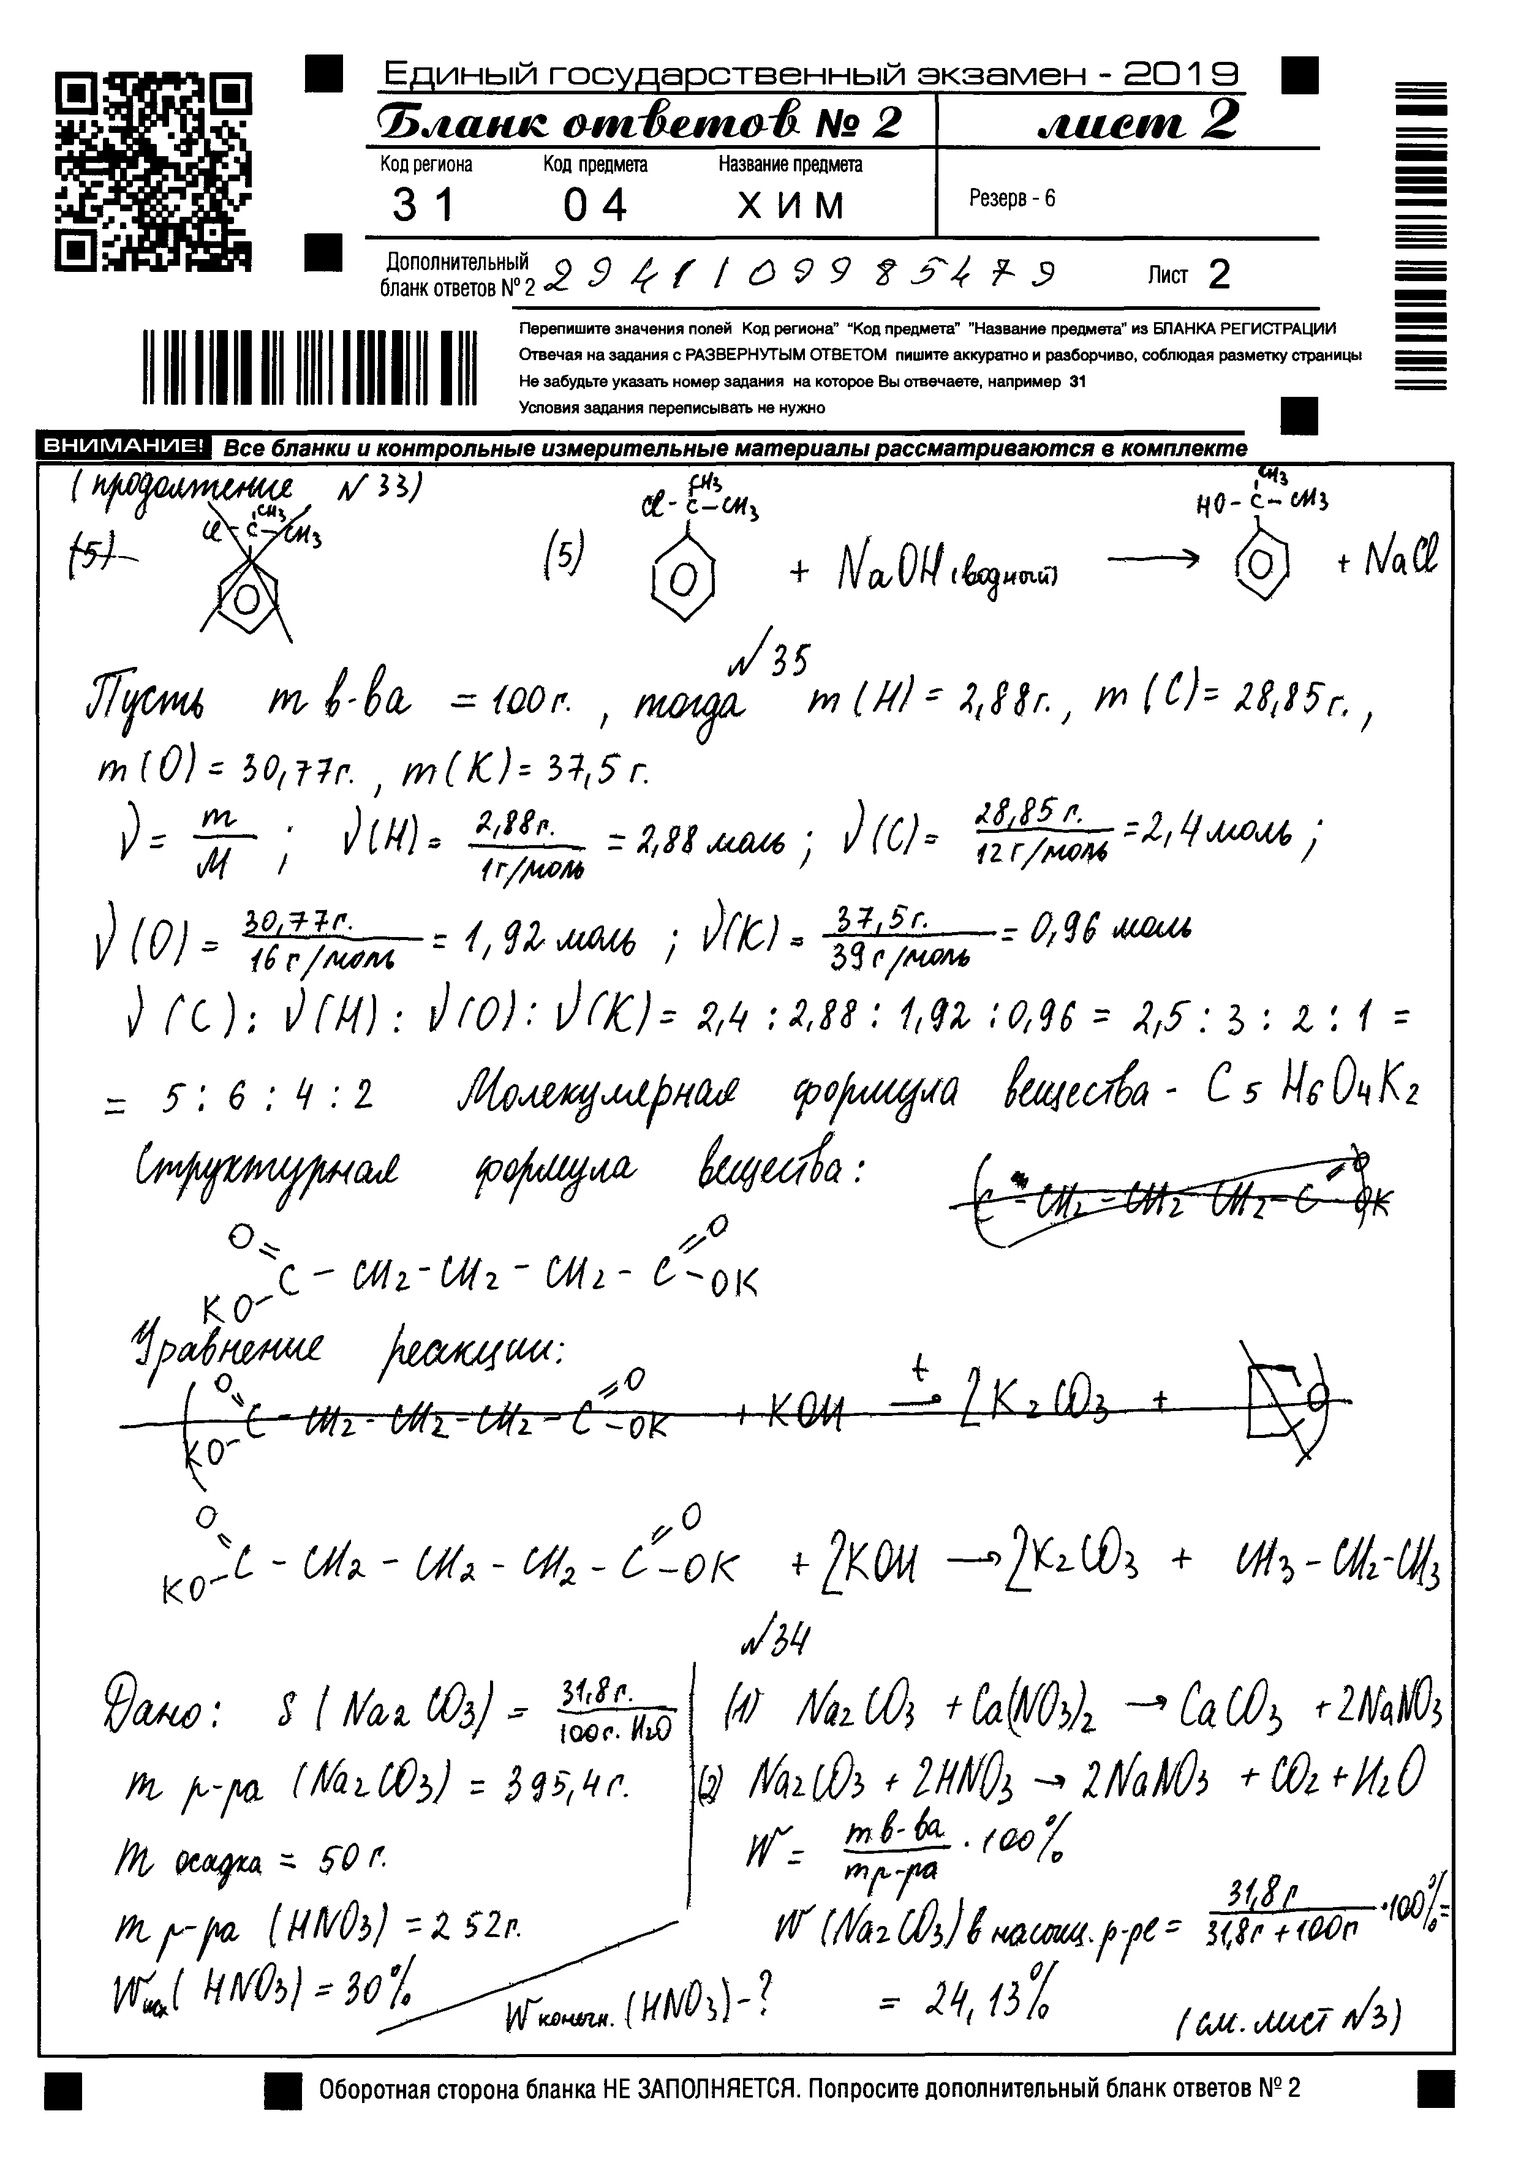 Единый государственный экзамен - 2019
Бланк ответов № 2 лист 2
Код региона Код предмета Название предмета
31 04 ХИМ Резерв - 6
Дополнительный бланк ответов № 2 2941109985479 Лист 2
Перепишите значения полей Код региона" "Код предмета" "Название предмета" из БЛАНКА РЕГИСТРАЦИИ
Отвечая на задания с РАЗВЕРНУТЫМ ОТВЕТОМ пишите аккуратно и разборчиво, соблюдая разметку страницы
Не забудьте указать номер задания на которое Вы отвечаете, например 31
Условия задания переписывать не нужно
ВНИМАНИЕ! Все бланки и контрольные измерительные материалы рассматриваются в комплекте
(продолжение № 33)
CH3 CH3 CH3
(5) Cl - C - CH3 (5) Cl - C - CH3 + NaOH (водный) → HO - C - CH3 + NaCl
№ 35
Пусть m в-ва = 100 г. , тогда m (H) = 2,88 г., m (C) = 28,85 г.,
m (O) = 30,77 г. , m (K) = 37,5 г.
ν = m/M ; ν(H) = 2,88 г. / 1 г/моль = 2,88 моль ; ν (C) = 28,85 г. / 12 г/моль = 2,4 моль ;
ν (O) = 30,77 г. / 16 г/моль = 1,92 моль ; ν(K) = 37,5 г. / 39 г/моль = 0,96 моль
ν (C) : ν (H) : ν (O) : ν (K) = 2,4 : 2,88 : 1,92 : 0,96 = 2,5 : 3 : 2 : 1 =
= 5 : 6 : 4 : 2 Молекулярная формула вещества - C5H6O4K2
Структурная формула вещества: (C - CH2 - CH2 CH2 - C =O OK)
O= KO- C - CH2 - CH2 - CH2 - C =O -OK
Уравнение реакции:
(O= KO- C - CH2 - CH2 - CH2 - C =O -OK + KOH →t 2K2CO3 + )
O= KO- C - CH2 - CH2 - CH2 - C =O -OK + 2KOH → 2K2CO3 + CH3 - CH2 - CH3
№ 34
Дано: S (Na2CO3) = 31,8 г. / 100 г. H2O (1) Na2CO3 + Ca(NO3)2 → CaCO3 + 2NaNO3
m р-ра (Na2CO3) = 395,4 г. (2) Na2CO3 + 2HNO3 → 2NaNO3 + CO2 + H2O
m осадка = 50 г. W = m в-ва / m р-ра · 100%
m р-ра (HNO3) = 252 г. W (Na2CO3) в насыщ. р-ре = 31,8 г / 31,8 г + 100 г · 100% =
Wисх (HNO3) = 30% Wконечн. (HNO3) - ? = 24,13%
(см. лист № 3)
Оборотная сторона бланка НЕ ЗАПОЛНЯЕТСЯ. Попросите дополнительный бланк ответов № 2